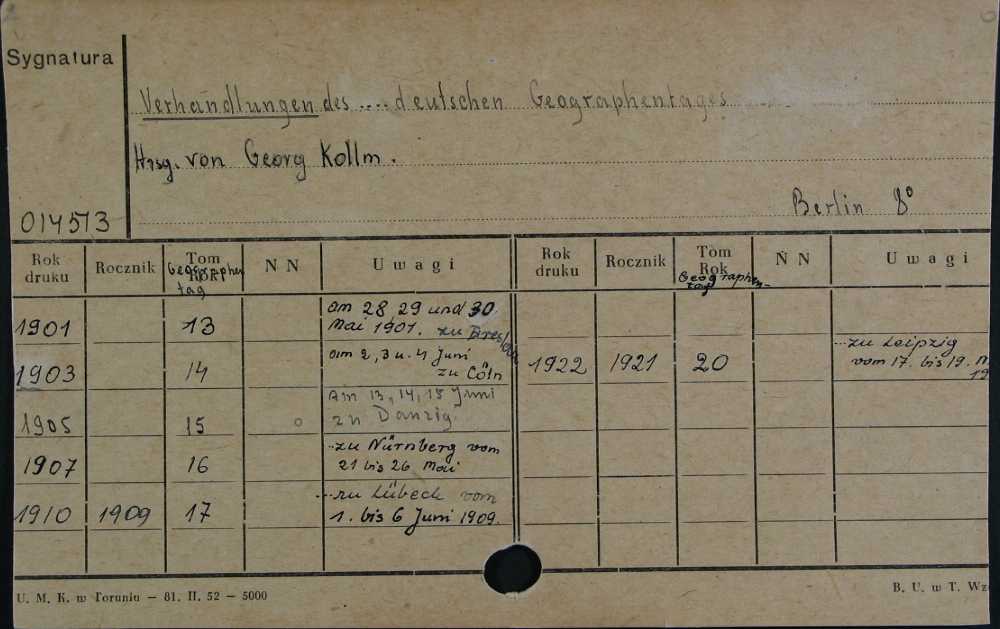 Sygnatura
Verhandlungen des .... deutschen Geographentages
Hrsg. von Georg Kollm.
Berlin 8°
014513
Rok druku Rocznik Tom Rok Geographentag N N Uwagi Rok druku Rocznik Tom Rok Geographen-tag N N Uwagi
1901 13 am 28, 29 und 30
Mai 1901. zu Breslau
1903 14 am 2, 3 u. 4 Juni
zu Cöln
1922 1921 20 ...zu Leipzig
vom 17. bis 19.
1905 15 Am 13, 14, 15 Juni
zu Danzig.
1907 16 ...zu Nürnberg vom
21 bis 26 Mai
1910 1909 17 ...zu Lübeck vom
1. bis 6 Juni 1909.
U. M. K. w Toruniu — 81. II. 52 — 5000
B. U. w T.